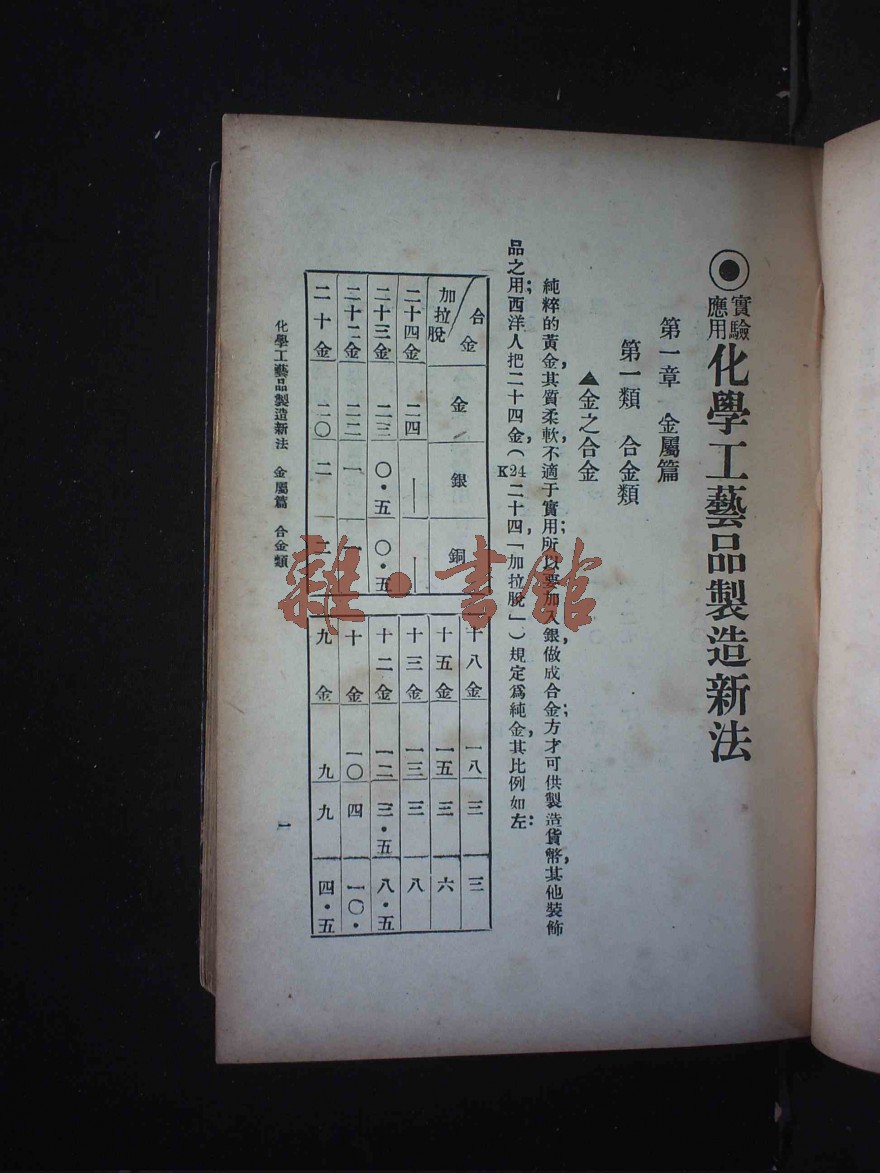 ◉實驗應用化學工藝品製造新法
第一章 金屬篇
第一類 合金類
▲金之合金
純粹的黃金,其質柔軟,不適于實用;所以要加入銀,做成合金;方才可供製造貨幣,其他裝飾
品之用;西洋人把二十四金,(K24二十四「加拉脫」)規定爲純金,其比例如左:
合金 加拉脫 金 銀 銅
二十四金 二四 — —
二十三金 二三 〇·五 〇·五
二十二金 二二 一 一
二十金 二〇 二 二
十八金 一八 三 三
十五金 一五 三 六
十三金 一三 三 八
十二金 一二 三·五 八·五
十金 一〇 四 一〇·
九金 九 九 四·五
化學工藝品製造新法 金屬篇 合金類
一
雜·書館